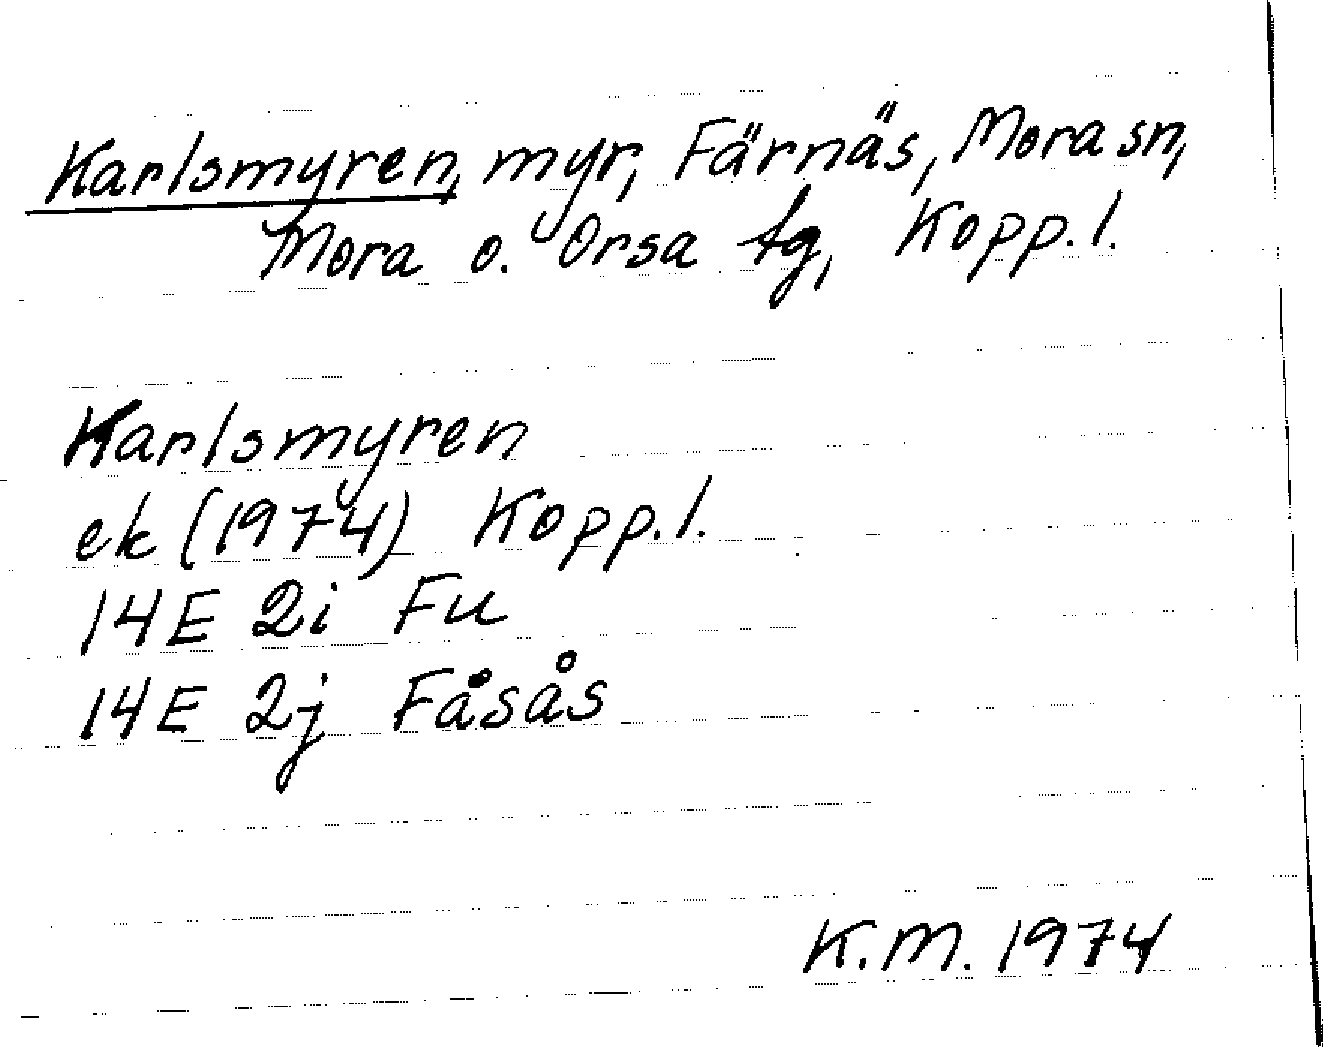 Karlsmyren, myr, Färnäs, Mora sn,
Mora o. Orsa tg, Kopp. l.
Karlsmyren
ek (1974) Kopp. l.
14E 2i Fu
14E 2j Fåsås
K.M. 1974